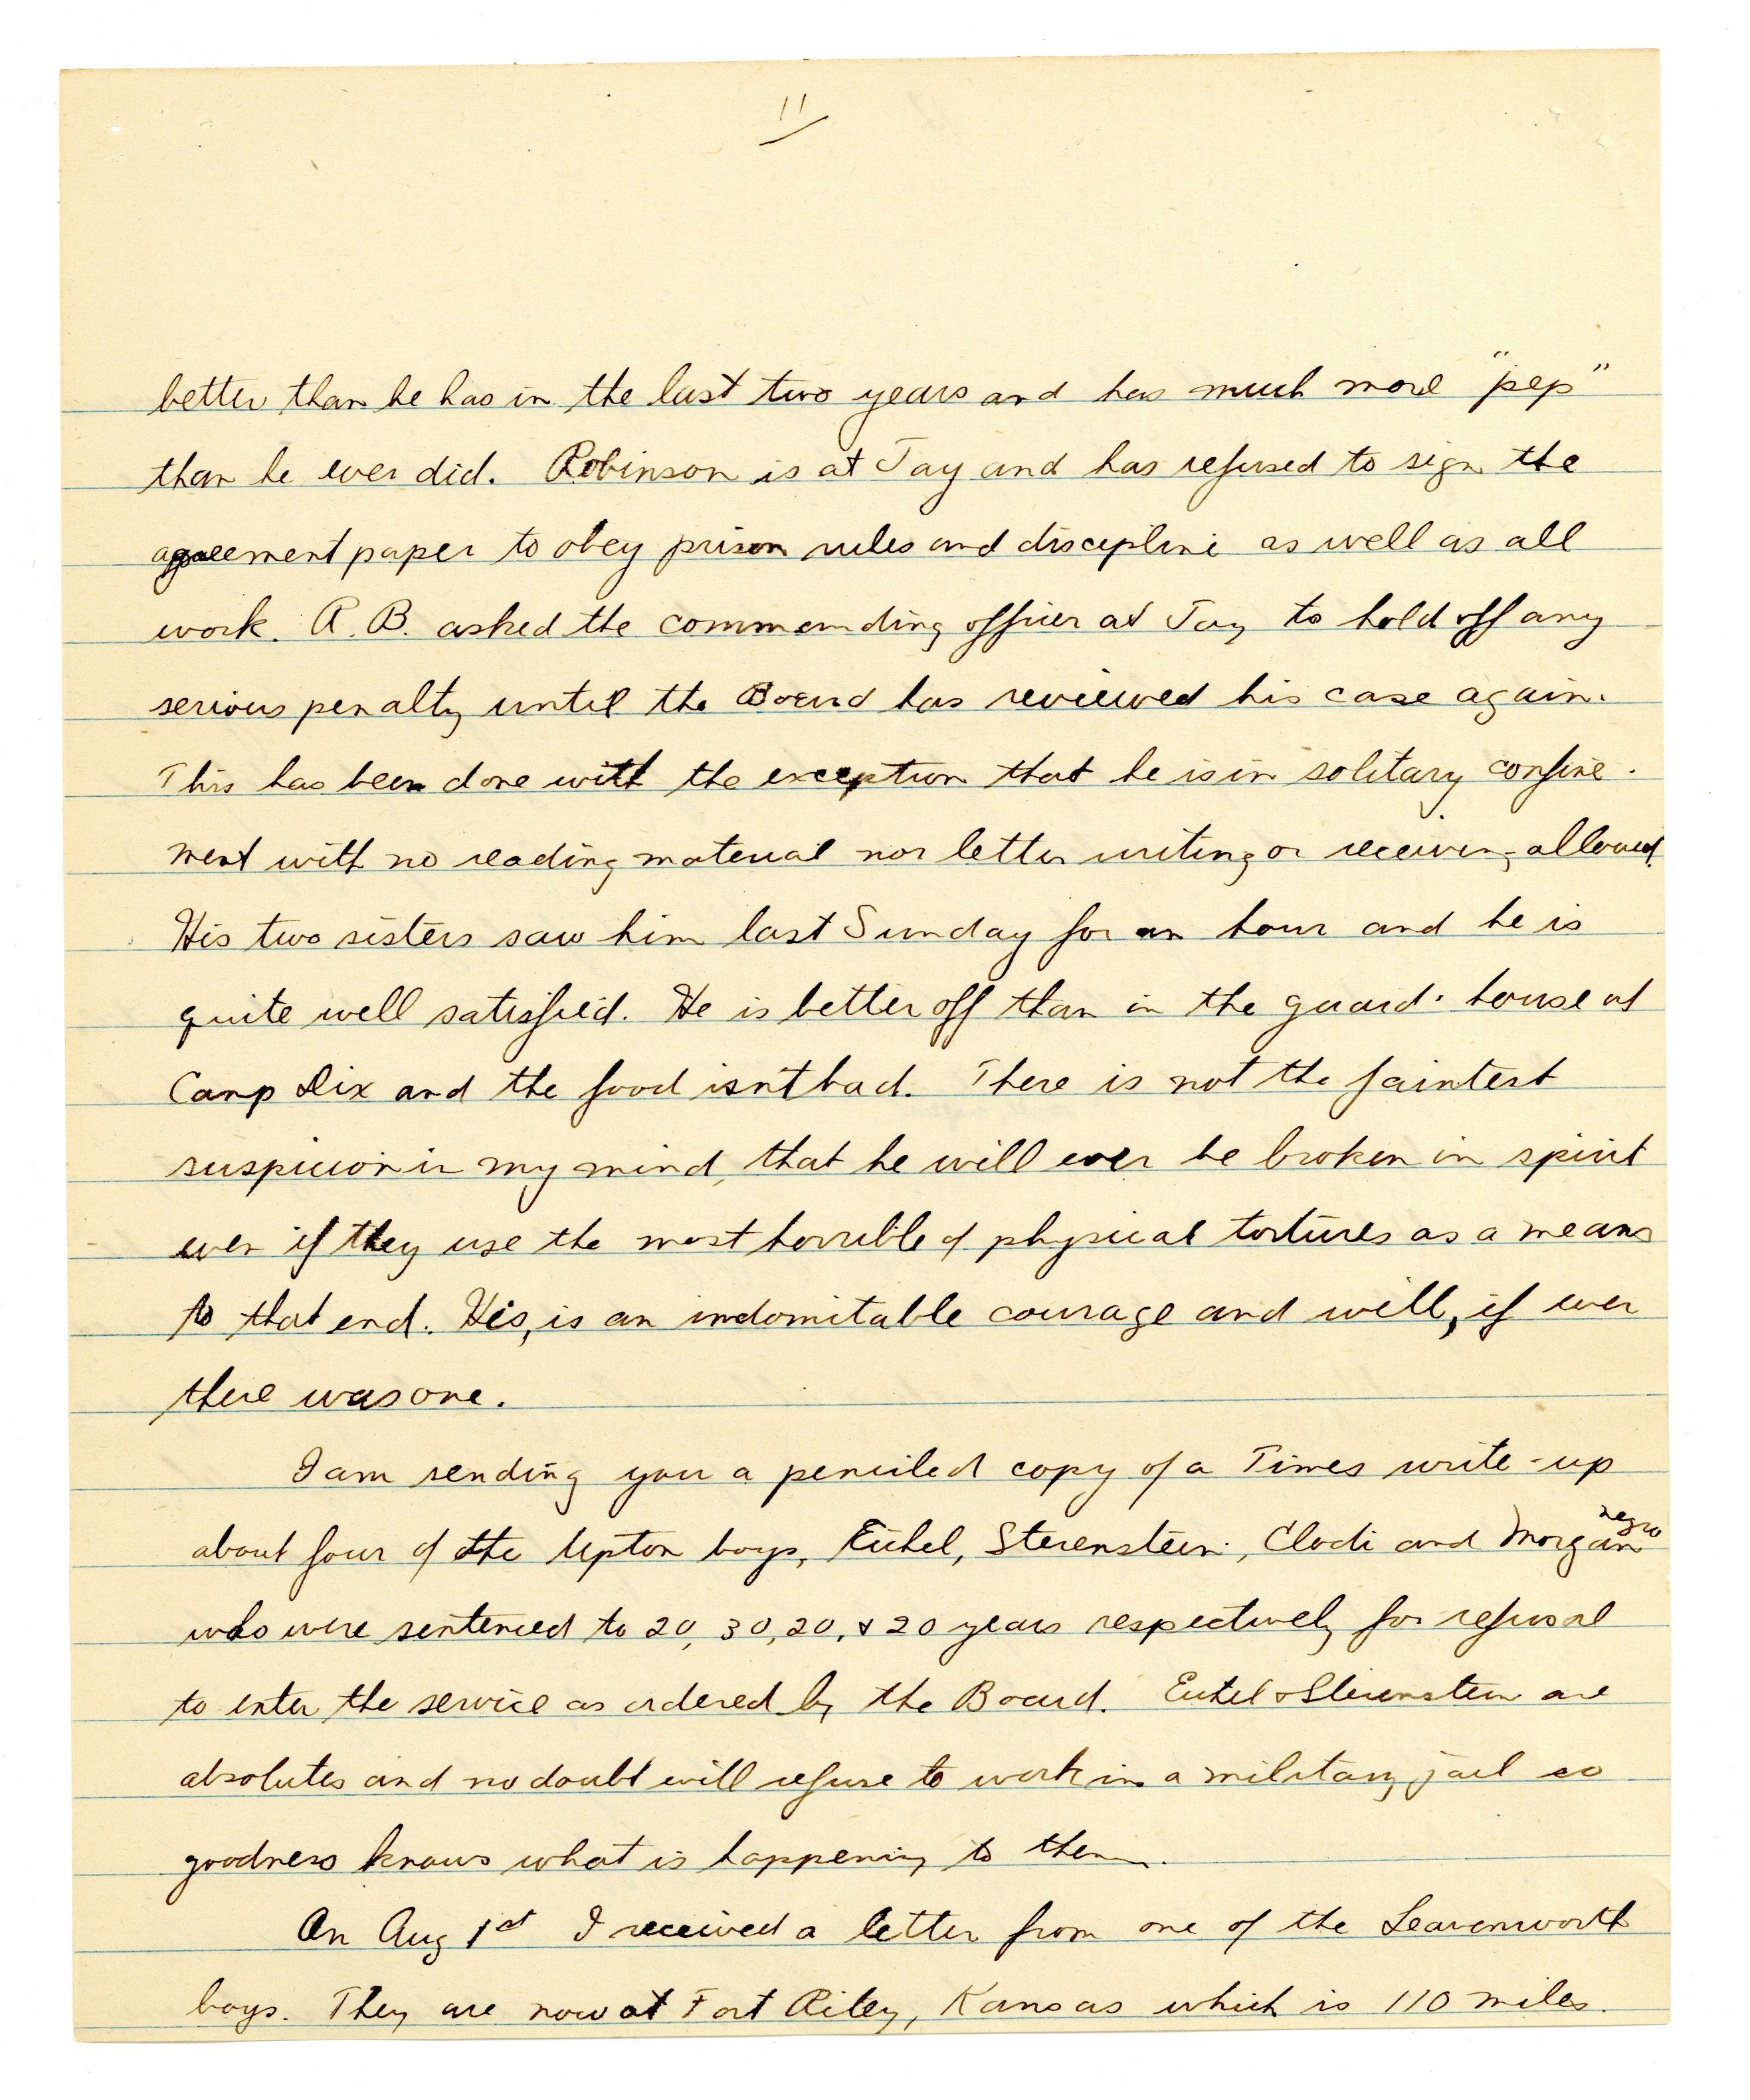 11
better than he has in the last two years and has much more "pep"
than he ever did. Robinson is at Jay and has refused to sign the
agreement paper to obey prison rules and discipline as well as all
work. R. B. asked the commanding officer at Jay to hold off any
serious penalty until the Board has reviewed his case again.
This has been done with the exception that he is in solitary confine-
ment with no reading material nor letter writing or receiving allowed.
His two sisters saw him last Sunday for an hour and he is
quite well satisfied. He is better off than in the guard-house at
Camp Dix and the food isn't bad. There is not the faintest
suspicion in my mind, that he will ever be broken in spirit
even if they use the most horrible of physical tortures as a means
to that end. His, is an indomitable courage and will, if ever
there was one.
I am sending you a penciled copy of a Times write-up
negro
about four of the Upton boys, Eichel, Sterenstein, Clodi and Morgan
who were sentenced to 20, 30, 20, & 20 years respectively for refusal
to enter the service as ordered by the Board. Eichel & Sterenstein are
absolutes and no doubt will refuse to work in a military jail so
goodness knows what is happening to them.
On Aug 1st I received a letter from one of the Leavenworth
boys. They are now at Fort Riley, Kansas which is 110 miles.